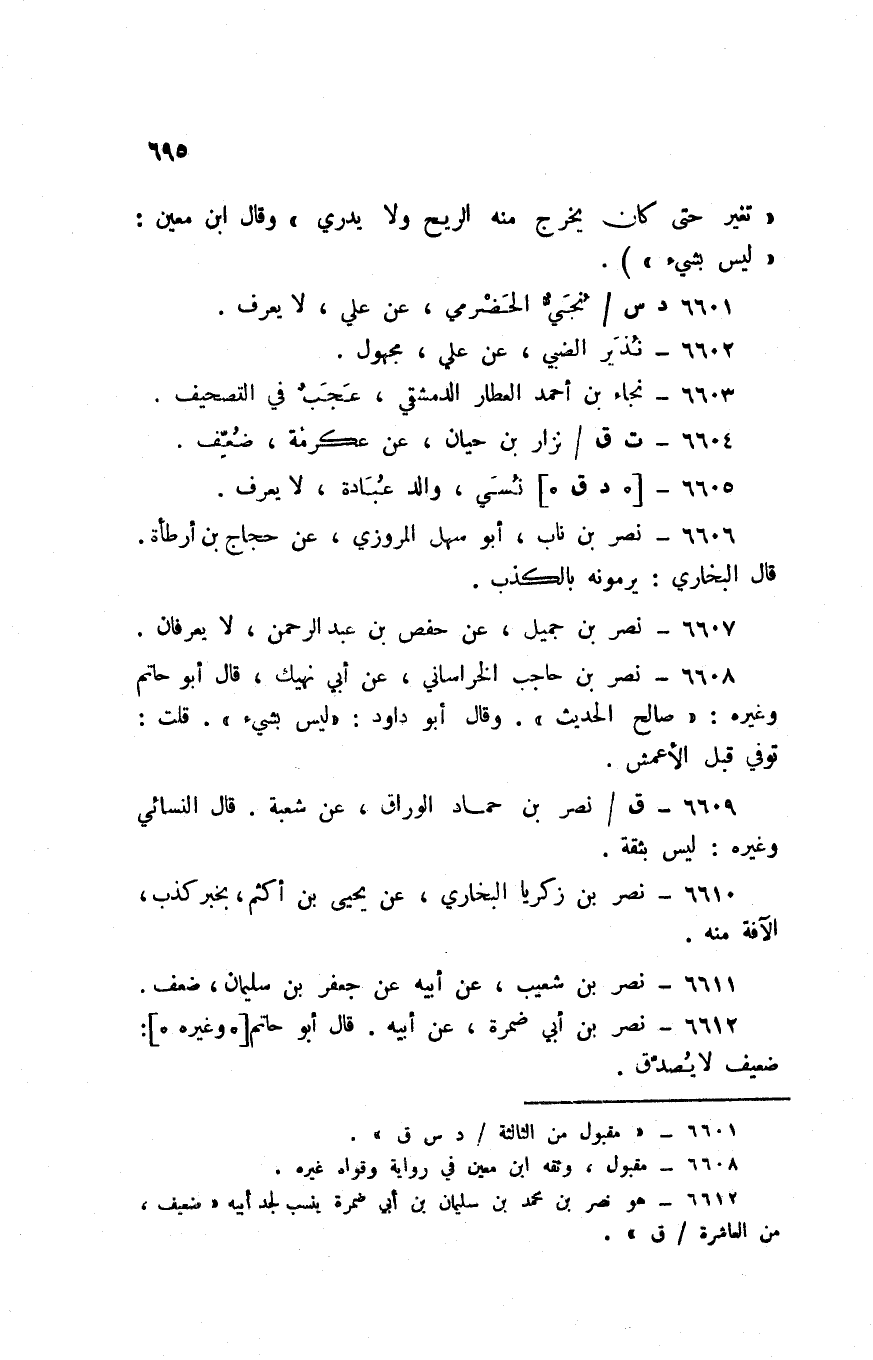 ٦٩٥
« تغير حتى كان يخرج منه الريح ولا يدري » وقال ابن معين :
« ليس بشيء » ) .
٦٦٠١ د س / نُجَيٌّ الحَضْرمي ، عن علي ، لا يعرف .
٦٦٠٢ – نُذَير الضبي ، عن علي ، مجهول .
٦٦٠٣ – نجاء بن أحمد العطار الدمشقي ، عَجَبٌ في التصحيف .
٦٦٠٤ – ت ق / نزار بن حيان ، عن عكرمة ، ضُعِّف .
٦٦٠٥ – [ه د ق ه] نُسَي ، والد عُبَادة ، لا يعرف .
٦٦٠٦ – نصر بن ناب ، أبو سهل المروزي ، عن حجاج بن أرطأة .
قال البخاري : يرمونه بالكذب .
٦٦٠٧ – نصر بن جميل ، عن حفص بن عبد الرحمن ، لا يعرفان .
٦٦٠٨ – نصر بن حاجب الخراساني ، عن أبي نهيك ، قال أبو حاتم
وغيره : « صالح الحديث » . وقال أبو داود : «ليس بشيء » . قلت :
توفي قبل الأعمش .
٦٦٠٩ – ق / نصر بن حماد الوراق ، عن شعبة . قال النسائي
وغيره : ليس بثقة .
٦٦١٠ – نصر بن زكريا البخاري ، عن يحيى بن أكثم، بخبر كذب،
الآفة منه .
٦٦١١ – نصر بن شعيب ، عن أبيه عن جعفر بن سليمان، ضعف .
٦٦١٢ – نصر بن أبي ضمرة ، عن أبيه . قال أبو حاتم[ه وغيره ه]:
ضعيف لا يُصدَّق .
٦٦٠١ – « مقبول من الثالثة / د س ق » .
٦٦٠٨ – مقبول ، وثقه ابن معين في رواية وقواه غيره .
٦٦١٢ – هو نصر بن محمد بن سليمان بن أبي ضمرة ينسب لجد أبيه « ضعيف ،
من العاشرة / ق » .